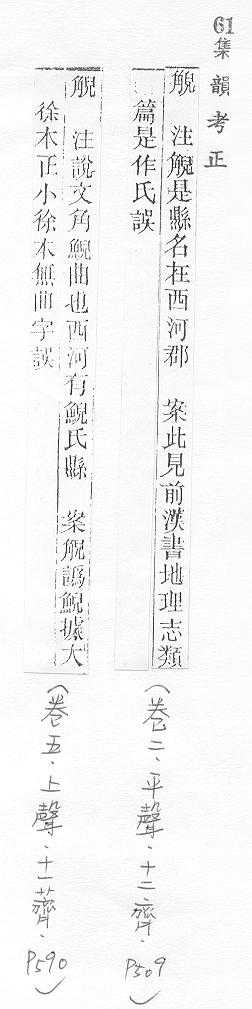 61
集韻考正
觬　注觬是縣名在西河郡　案此見前漢書地理志類
篇是作氏誤
(卷二、平聲、十二齊、P509)
觬　注說文角鯢曲也西河有鯢氏縣　案觬譌鯢據大
徐本正小徐本無曲字誤
(卷五、上聲、十一薺、P590)